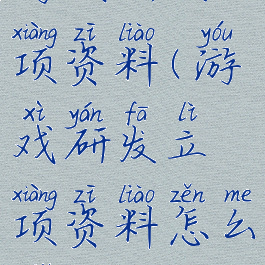 xiàng zī liào yóu
项资料(游
xì yán fā lì
戏研发立
xiàng zī liào zěn me
项资料怎么